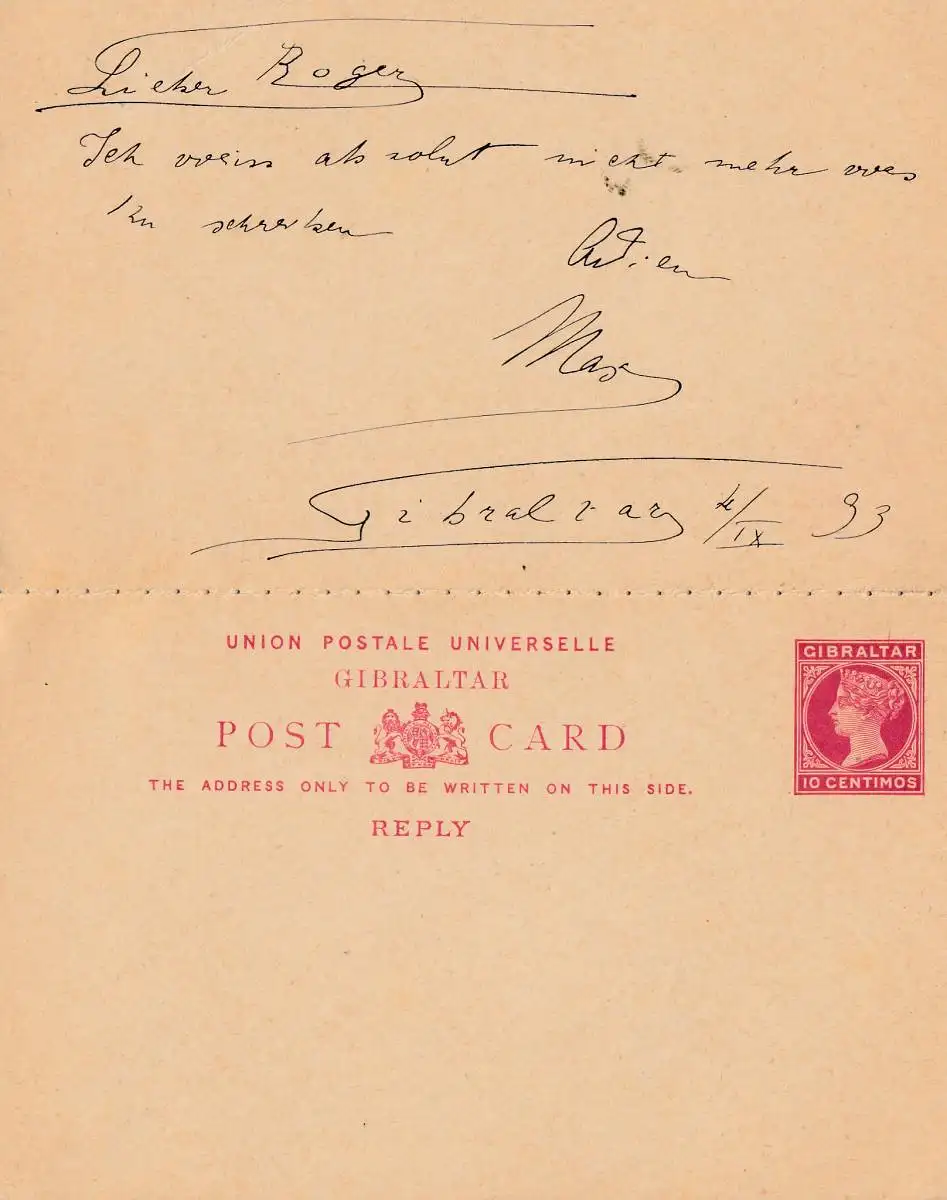 Lieber Roger
Ich weiss absolut nicht mehr was
zu schreiben
Adieu
Max
Gibraltar 4/IX 93
UNION POSTALE UNIVERSELLE
GIBRALTAR
POST CARD
THE ADDRESS ONLY TO BE WRITTEN ON THIS SIDE.
REPLY
GIBRALTAR
10 CENTIMOS